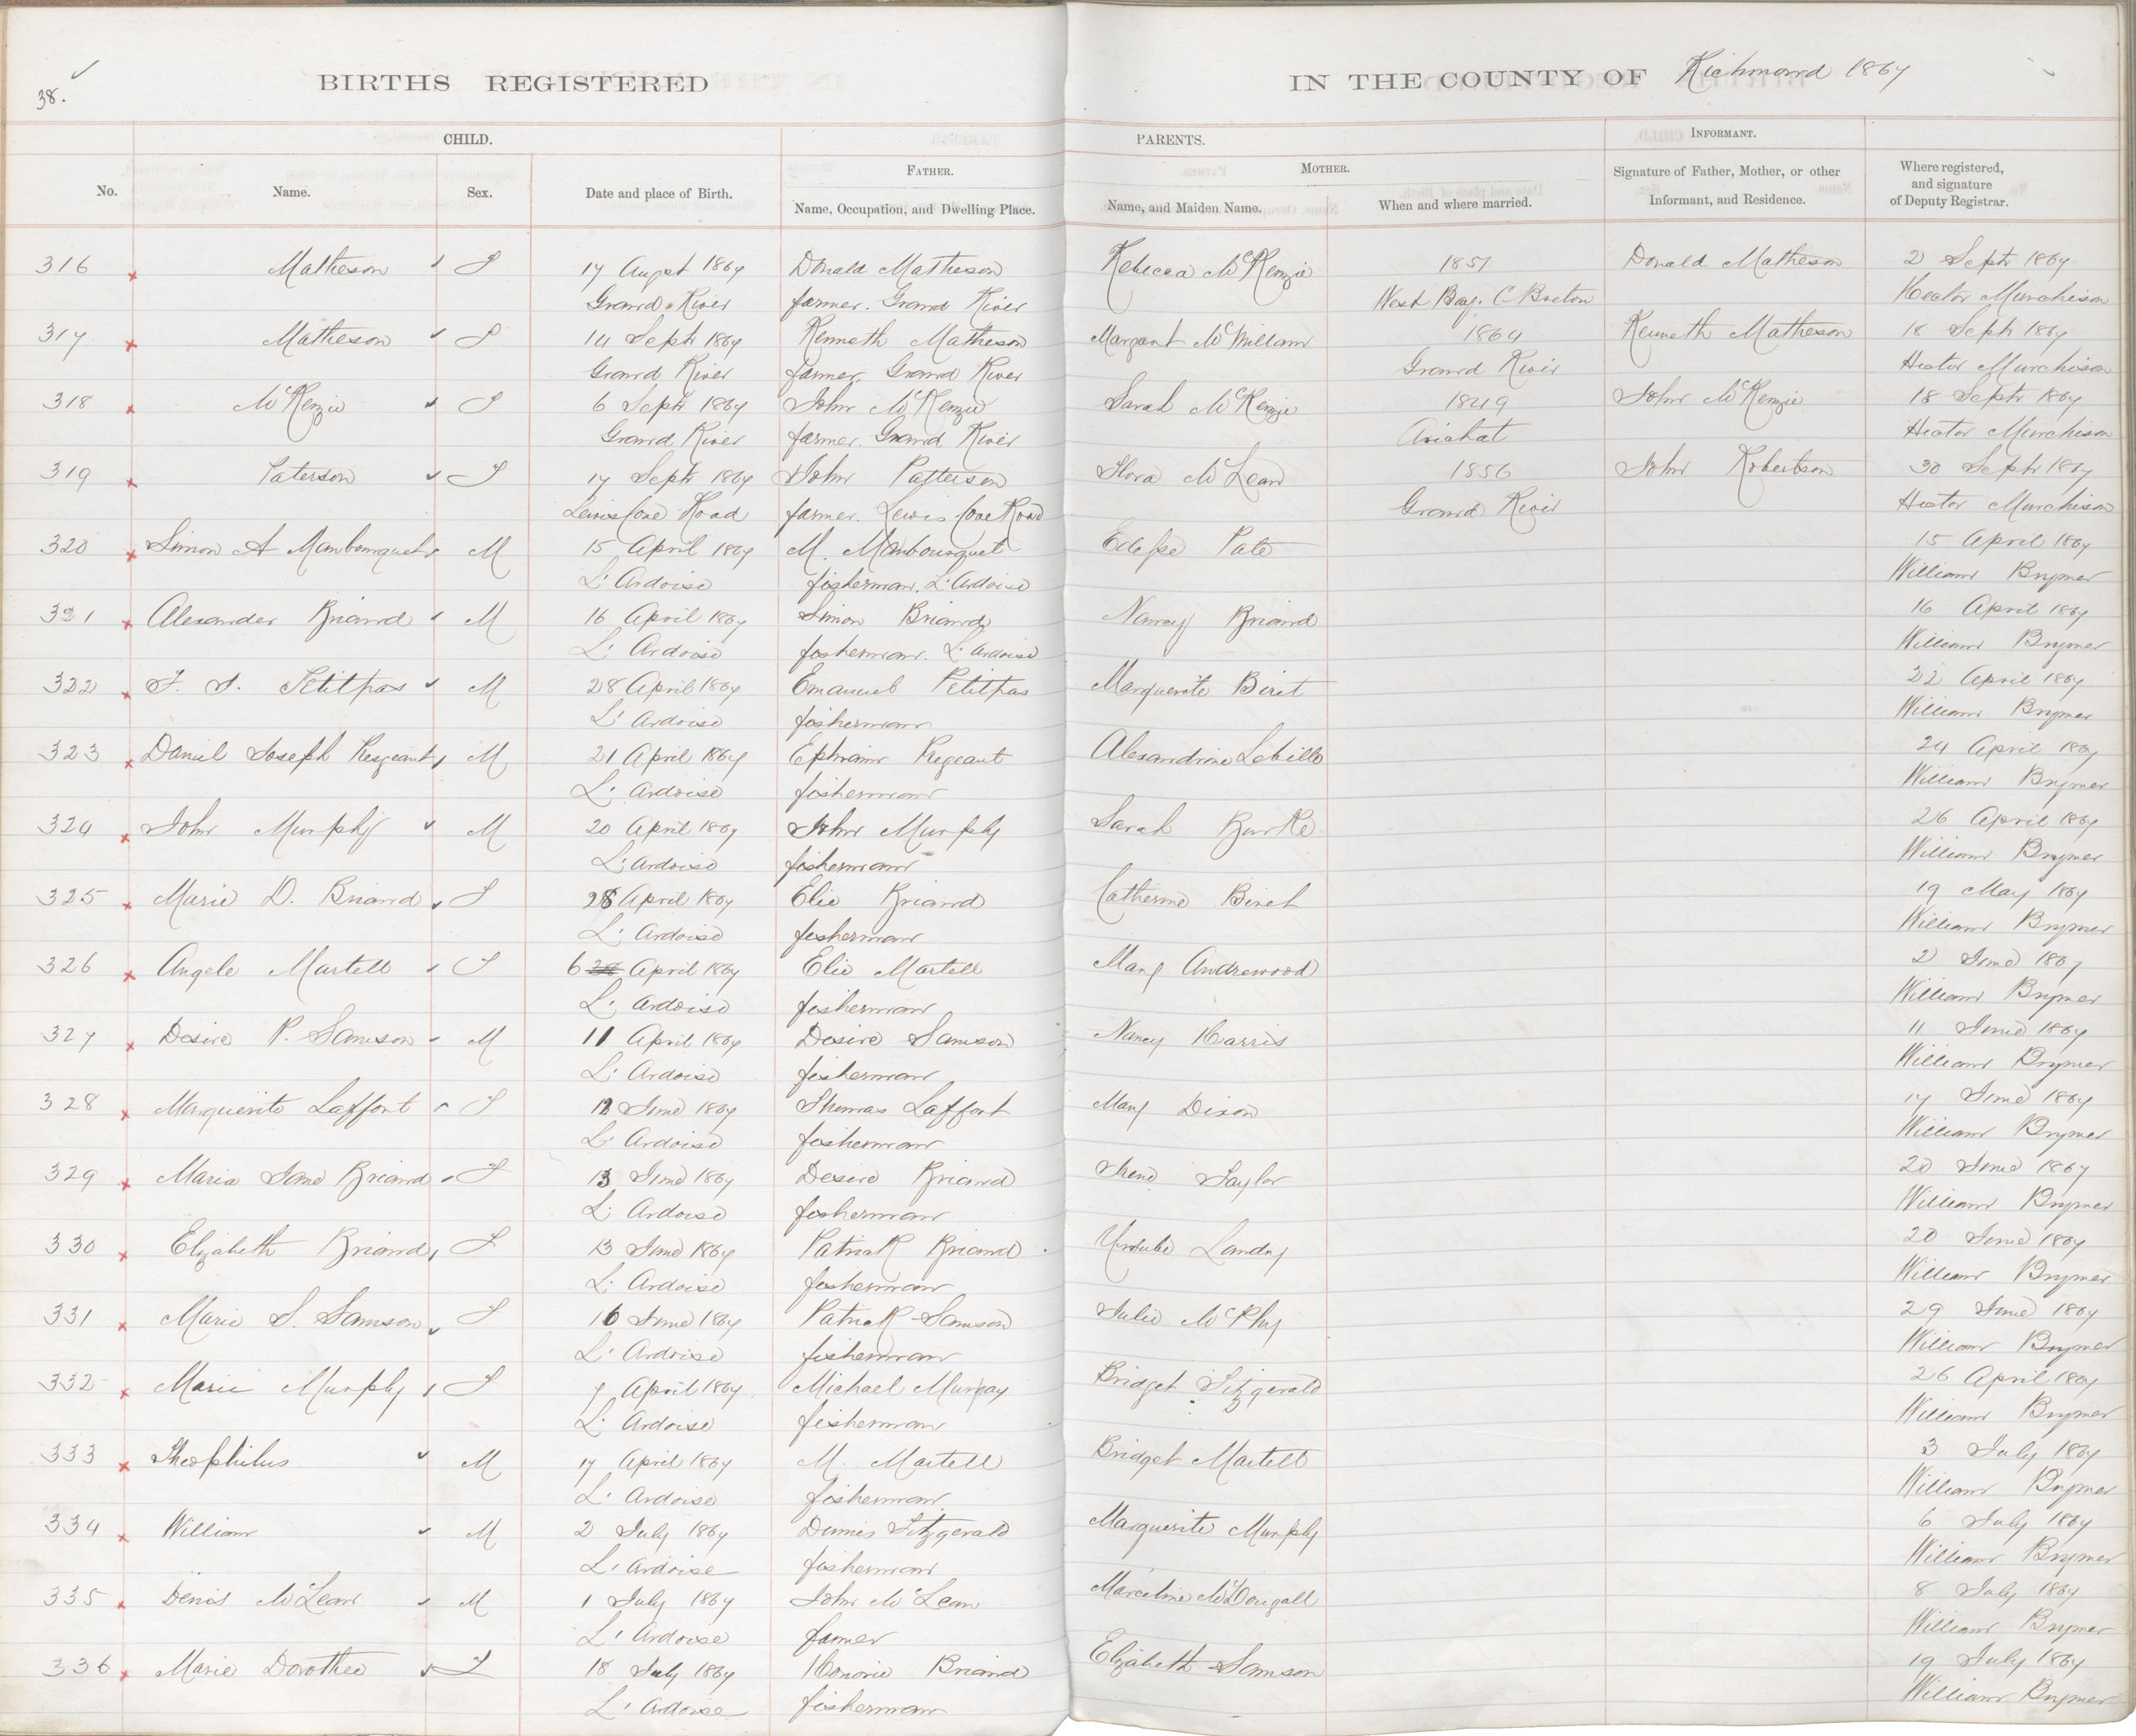 38.
BIRTHS REGISTERED IN THE COUNTY OF Richmond 1867
CHILD. PARENTS. INFORMANT.
FATHER. MOTHER.
No. Name. Sex. Date and place of Birth. Name, Occupation, and Dwelling Place. Name, and Maiden Name. When and where married. Signature of Father, Mother, or other Informant, and Residence. Where registered, and signature of Deputy Registrar.
316 Matheson F 17 August 1867 Donald Matheson Rebecca McKenzie 1851 Donald Matheson 2 Septr 1867
Grand River farmer. Grand River West Bay. C Breton Hector Murchison
317 Matheson F 14 Septr 1867 Kenneth Matheson Margaret McMillan 1864 Kenneth Matheson 18 Septr 1867
Grand River farmer. Grand River Grand River Hector Murchison
318 McKenzie F 6 Septr 1867 John McKenzie Sarah McKenzie 1849 John McKenzie 18 Septr 1867
Grand River farmer. Grand River Arichat Hector Murchison
319 Paterson F 17 Septr 1867 John Patterson Flora McLean 1856 John Robertson 30 Septr 1867
Lewis Cove Road farmer. Lewis Cove Road Grand River Hector Murchison
320 Simon A Mombourquet M 15 April 1867 M. Mombourquet Pate 15 April 1867
L'Ardoise fisherman. L'Ardoise William Brymer
321 Alexander Briand M 16 April 1867 Simon Briand Nancy Briand 16 April 1867
L'Ardoise fisherman. L'Ardoise William Brymer
322 F. S. Petitpas M 28 April 1867 Emanuel Petitpas Marguerite Biret 22 April 1867
L'Ardoise fisherman William Brymer
323 Daniel Joseph M 21 April 1867 Ephraim Alexandrine 24 April 1867
L'Ardoise fisherman William Brymer
324 John Murphy M 20 April 1867 John Murphy Sarah Burke 26 April 1867
L'Ardoise fisherman William Brymer
325 Marie D. Briand F 28 April 1867 Elie Briand Catherine Biret 19 May 1867
L'Ardoise fisherman William Brymer
326 Angele Martell F 6 April 1867 Elie Martell Mary Andrewood 2 June 1867
L'Ardoise fisherman William Brymer
327 Desire P. Samson M 11 April 1867 Desire Samson Nancy Harris 11 June 1867
L'Ardoise fisherman William Brymer
328 Marguerite Laffort F 12 June 1867 Thomas Laffort Mary Dixon 17 June 1867
L'Ardoise fisherman William Brymer
329 Maria Jane Briand F 13 June 1867 Desire Briand Irene Taylor 20 June 1867
L'Ardoise fisherman William Brymer
330 Elizabeth Briand F 13 June 1867 Patrick Briand Ursule Landry 20 June 1867
L'Ardoise fisherman William Brymer
331 Marie S. Samson F 16 June 1867 Patrick Samson Julie McPhy 29 June 1867
L'Ardoise fisherman William Brymer
332 Marie Murphy F 7 April 1867 Michael Bridget Fitzgerald 26 April 1867
L'Ardoise fisherman William Brymer
333 Theophilus M 17 April 1867 M. Martell Bridget Martell 3 July 1867
L'Ardoise fisherman William Brymer
334 William M 2 July 1867 Fitzgerald Marguerite Murphy 6 July 1867
L'Ardoise fisherman William Brymer
335 Denis McLean M 1 July 1867 John McLean Marceline McDougall 8 July 1867
L'Ardoise farmer William Brymer
336 Marie Dorothee F 18 July 1867 Honorie Briand Elizabeth Samson 19 July 1867
L'Ardoise fisherman William Brymer